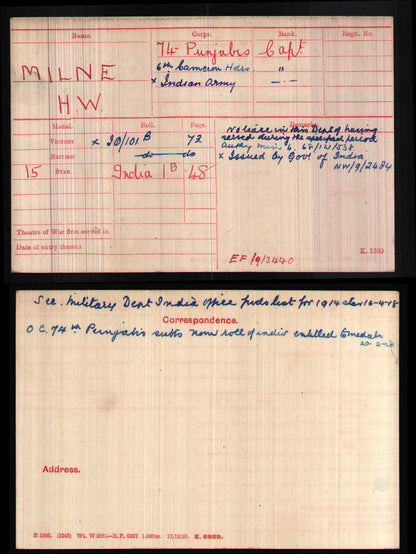 Name. Corps. Rank. Regtl. No.
74- Punjabis Capt
MILNE 6th Cameron Hdrs "
x Indian Army -"-
H.W.
Medal. Roll. Page. Remarks.
VICTORY x IO/101 B 73
BRITISH do do
15 STAR India 1 B 48
No trace in this Dept of having
served during the specified period
Authy min 6. 68/121/538
x Issued by Govt of India
NW/9/2484
Theatre of War first served in
Date of entry therein
EF/9/3440. K. 1380
Sec. Military Dept India Office fwds list for 1914 star 16-4-18
Correspondence.
O C. 74th Punjabis subts nom roll of indiv entitled to medals
20-2-20
Address.
(1246) Wt. W 2551—R.P. 6267 1,000m. 17/12/20. E. 6959.